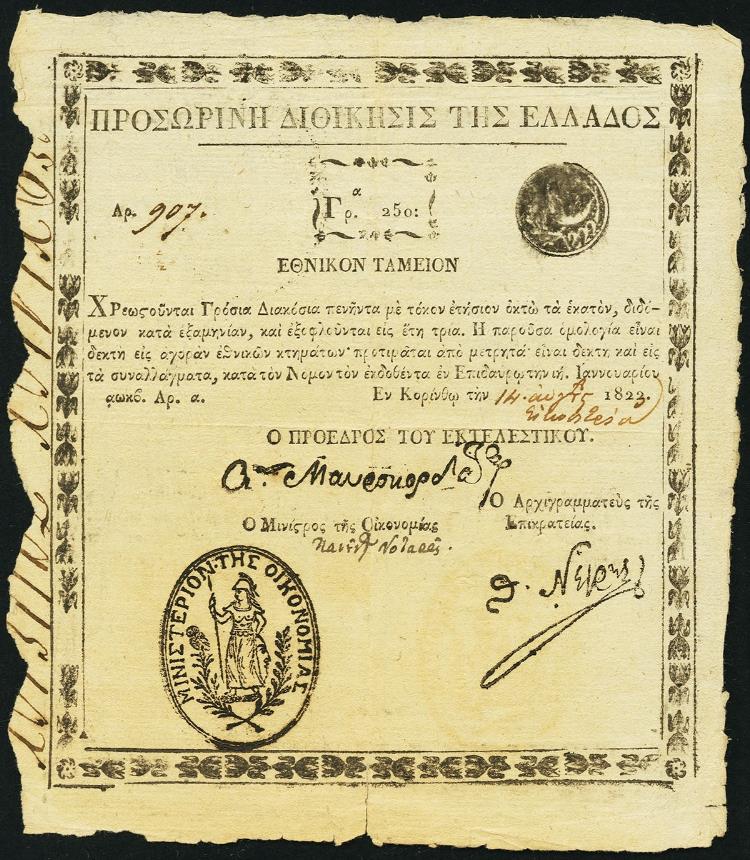 ΠΡΟΣΩΡΙΝΗ ΔΙΟΙΚΗΣΙΣ ΤΗΣ ΕΛΛΑΔΟΣ
Αρ. 907.
Γρ.α 250:
ΕΘΝΙΚΟΝ ΤΑΜΕΙΟΝ
ΧΡεωςούνται Γρόσια Διακόσια πενήντα μὲ τόκον ετήσιον οκτὼ τὰ ἑκατὸν, διδό-
μενον κατὰ ἑξαμηνίαν, καὶ ἐξοφλούνται εις ἔτη τρία. Η παροῦσα ὁμολογία εἶναι
δεκτὴ εις αγορὰν εθνικών κτημάτων· προτιμάται απὸ μετρητά· εἶναι δεκτὴ καὶ εις
τὰ συναλλάγματα, κατὰ τὸν Νομον τὸν εκδοθέντα ἐν Επιδαύρῳ τὴν ιή. Ιαννουαρίου
αωκό. Αρ. α.
Εν Κορίνθῳ τὴν 14 αὐγ 1822.
Ο ΠΡΟΕΔΡΟΣ ΤΟΥ ΕΚΤΕΛΕΣΤΙΚΟΥ.
Α. Μαυροκορδ
Ο Αρχιγραμματεὺς τῆς
Επικρατείας.
Ο Μινίςρος τῆς Οικονομίας
Νοταρᾶς.
Θ. Νέγρης
ΜΙΝΙΣΤΕΡΙΟΝ·ΤΗΣ ΟΙΚΟΝΟΜΙΑΣ